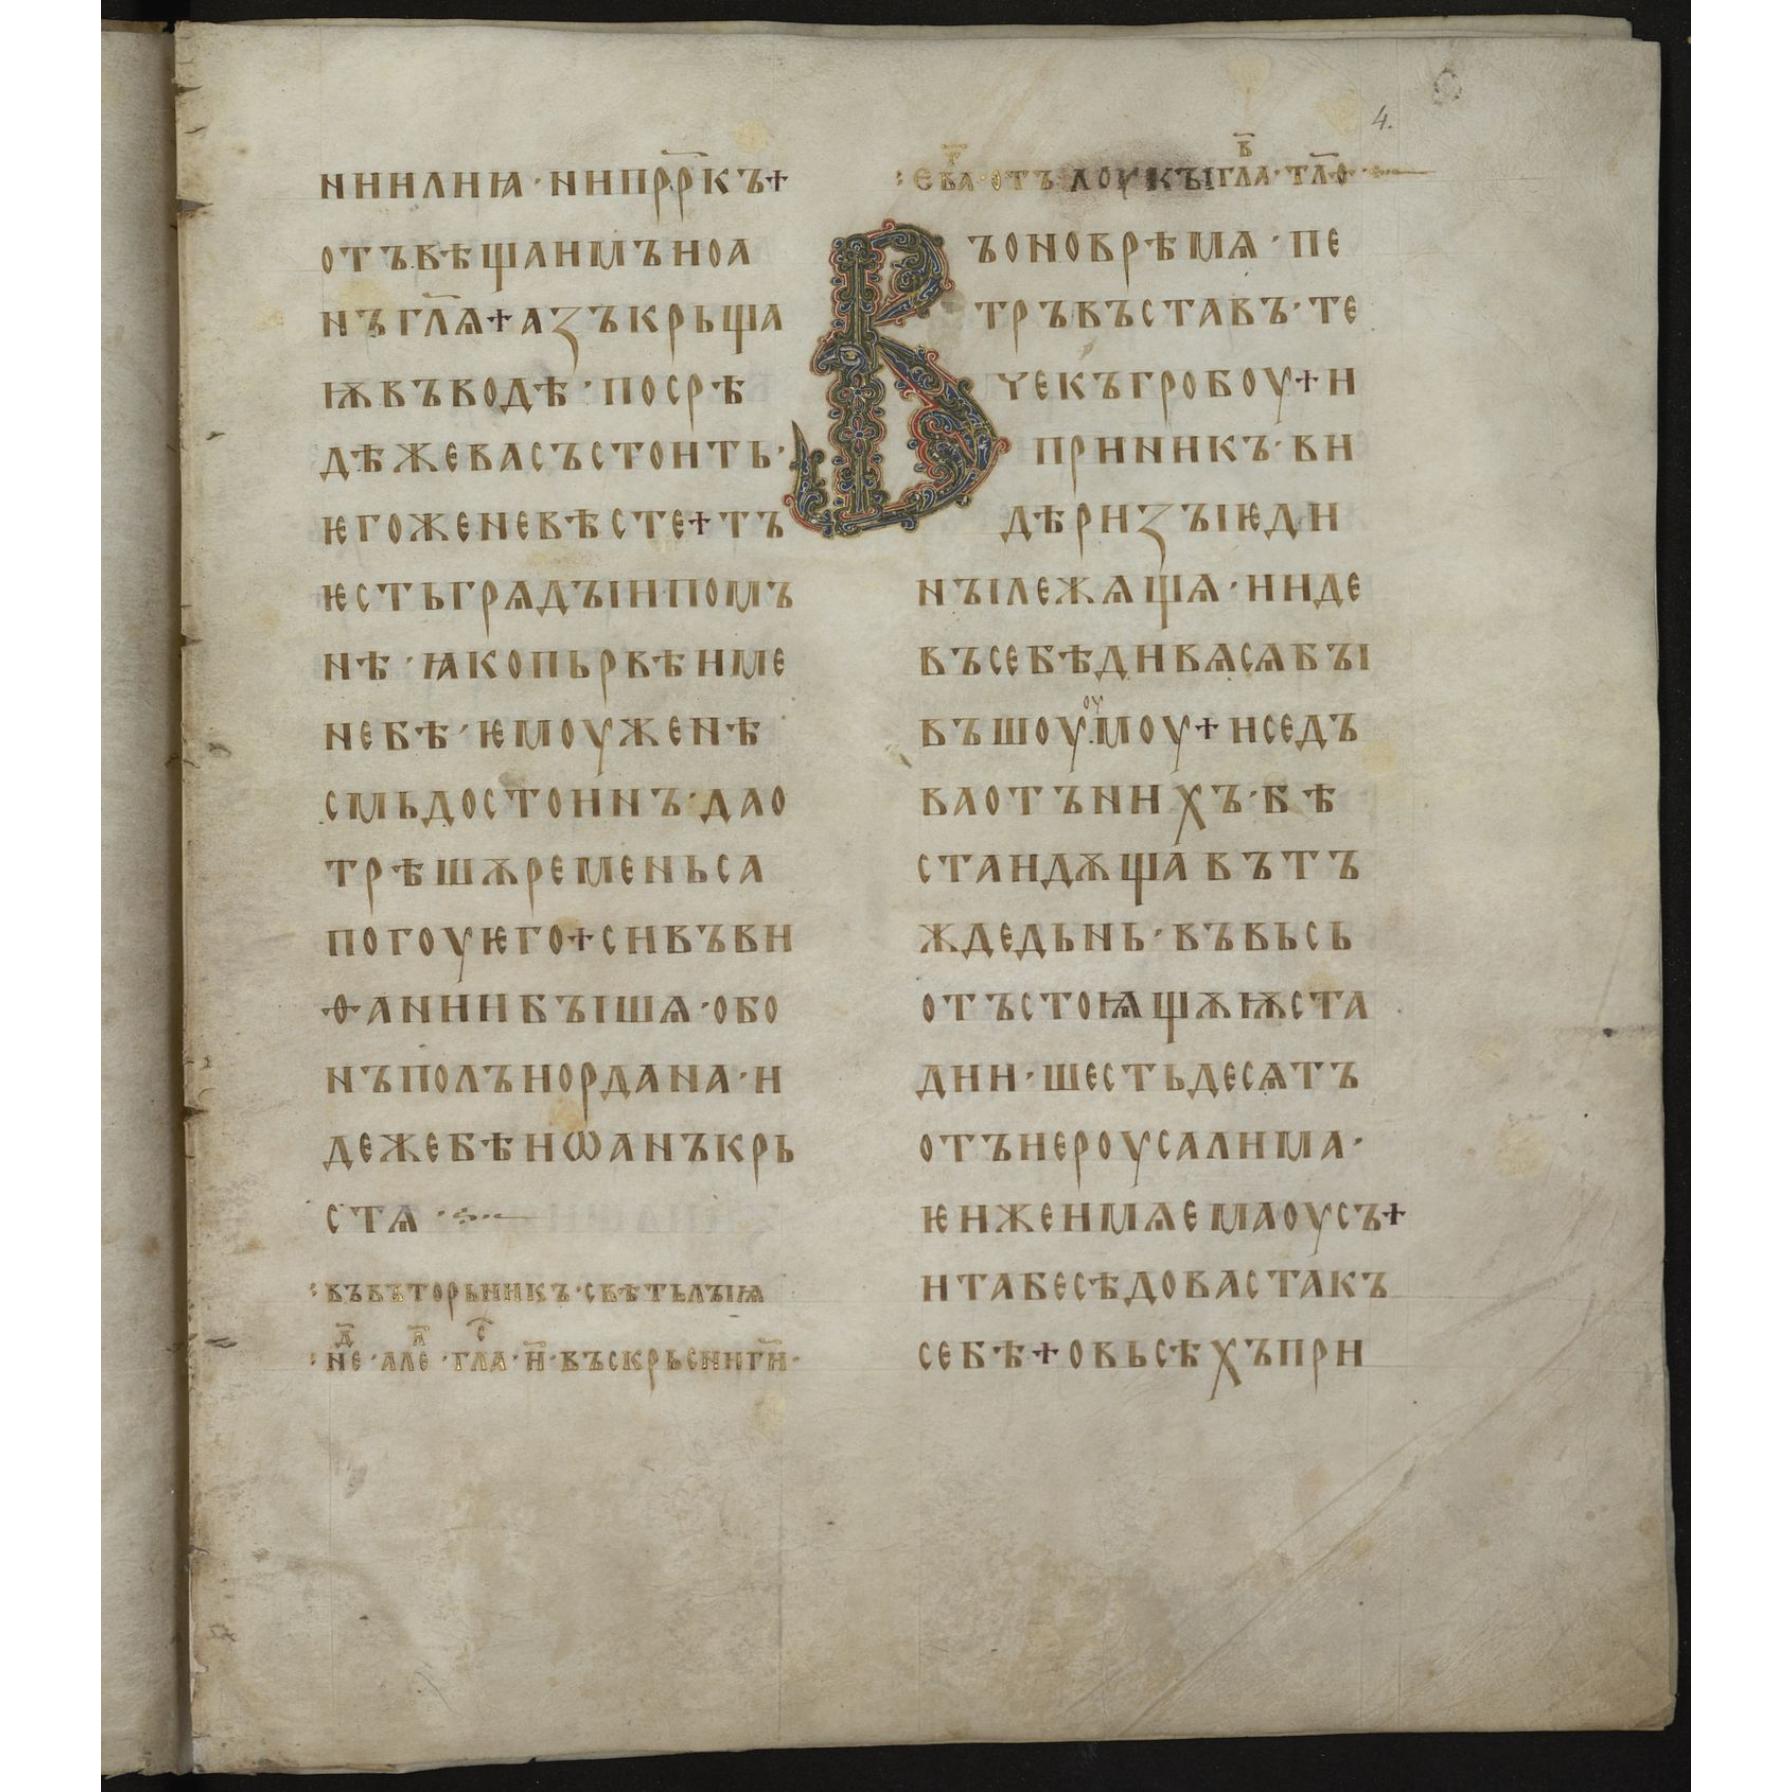 ни илиꙗ · ни пр҃ркъ +
отъвѣща имъ иоа
нъ гл҃ѧ + азъ крьща
ѭ въ водѣ · посрѣ
дѣ же васъ стоить ·
ѥгоже не вѣсте + тъ
ѥсть грѧдыи по мъ
нѣ · ꙗко пьрвѣи ме
не бѣ · ѥмоуже нѣ
смь достоинъ · да о
трѣшѫ ремень са
погоу ѥго + си въ ви
ѳании бышѧ · об о
нъ полъ иордана · и
деже бѣ иѡанъ крь
стѧ ·
въ въторьникъ · свѣтьлыѩ
н҃е · але · гла · и҃ · въскрьсни г҃и ·
4.
еѵ҃а · отъ лоукы гла · гл҃о ·
Въ оно врѣмѧ · пе
тръ въставъ · те
че къ гробоу + и
приникъ · ви
дѣ ризы ѥди
ны лежѧщѧ · и иде
въ себѣ дивѧсѧ бы
въшоуоумоу + и се дъ
ва отъ нихъ · бѣ
ста идѫща въ тъ
жде дьнь · въ вьсь
отъстоѩщѫѭ ста
дии · шесть десѧтъ
отъ иероусалима ·
ѥиже имѧ емаоусъ +
и та бесѣдоваста къ
себѣ + о вьсѣхъ при